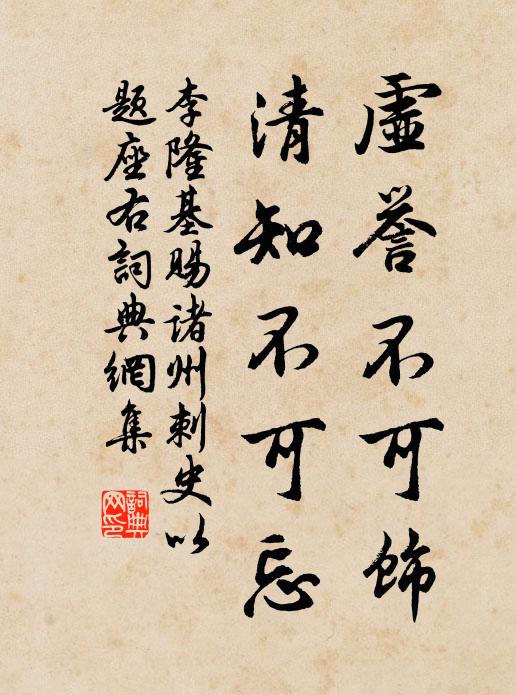 虛譽不可飾
清知不可忘
李隆基賜諸州刺史以
題座右詞典網集
詞典
网印